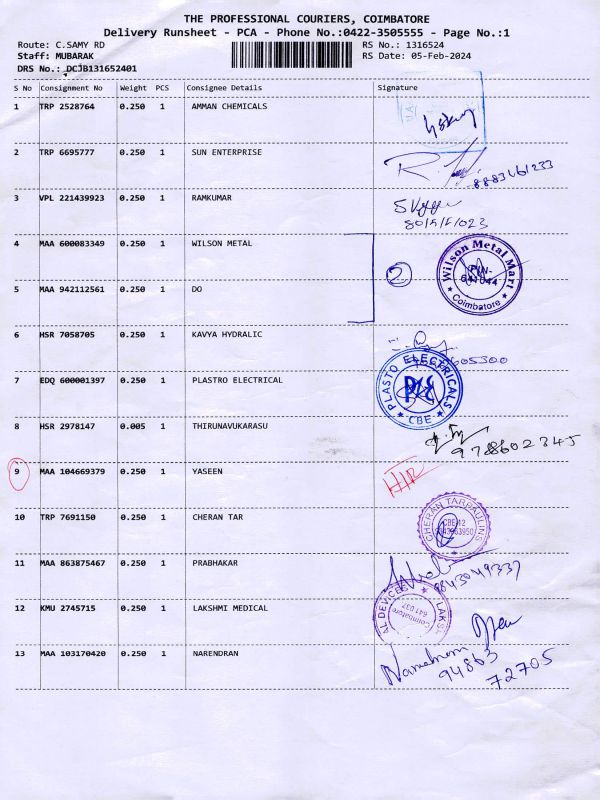 THE PROFESSIONAL COURIERS, COIMBATORE
Delivery Runsheet - PCA - Phone No.:0422-3505555 - Page No.:1
Route: C.SAMY RD RS No.: 1316524
Staff: MUBARAK RS Date: 05-Feb-2024
DRS No.: DCJB131652401
S No Consignment No Weight PCS Consignee Details Signature
1 TRP 2528764 0.250 1 AMMAN CHEMICALS
2 TRP 6695777 0.250 1 SUN ENTERPRISE
3 VPL 221439923 0.250 1 RAMKUMAR
4 MAA 600083349 0.250 1 WILSON METAL
2
Wilson Metal Mart
PIN-
641044
Coimbatore
5 MAA 942112561 0.250 1 DO
6 HSR 7058705 0.250 1 KAVYA HYDRALIC
605300
7 EDQ 600001397 0.250 1 PLASTRO ELECTRICAL
PLASTO ELECTRICALS
PCE
CBE
8 HSR 2978147 0.005 1 THIRUNAVUKARASU
9788602345
9 MAA 104669379 0.250 1 YASEEN
10 TRP 7691150 0.250 1 CHERAN TAR
CHERAN TARPAULINS
CBE-12
11 MAA 863875467 0.250 1 PRABHAKAR
9843049337
12 KMU 2745715 0.250 1 LAKSHMI MEDICAL
LAKS
AL DEVICES
Coimbatore
641 037
13 MAA 103170420 0.250 1 NARENDRAN
94863
72705